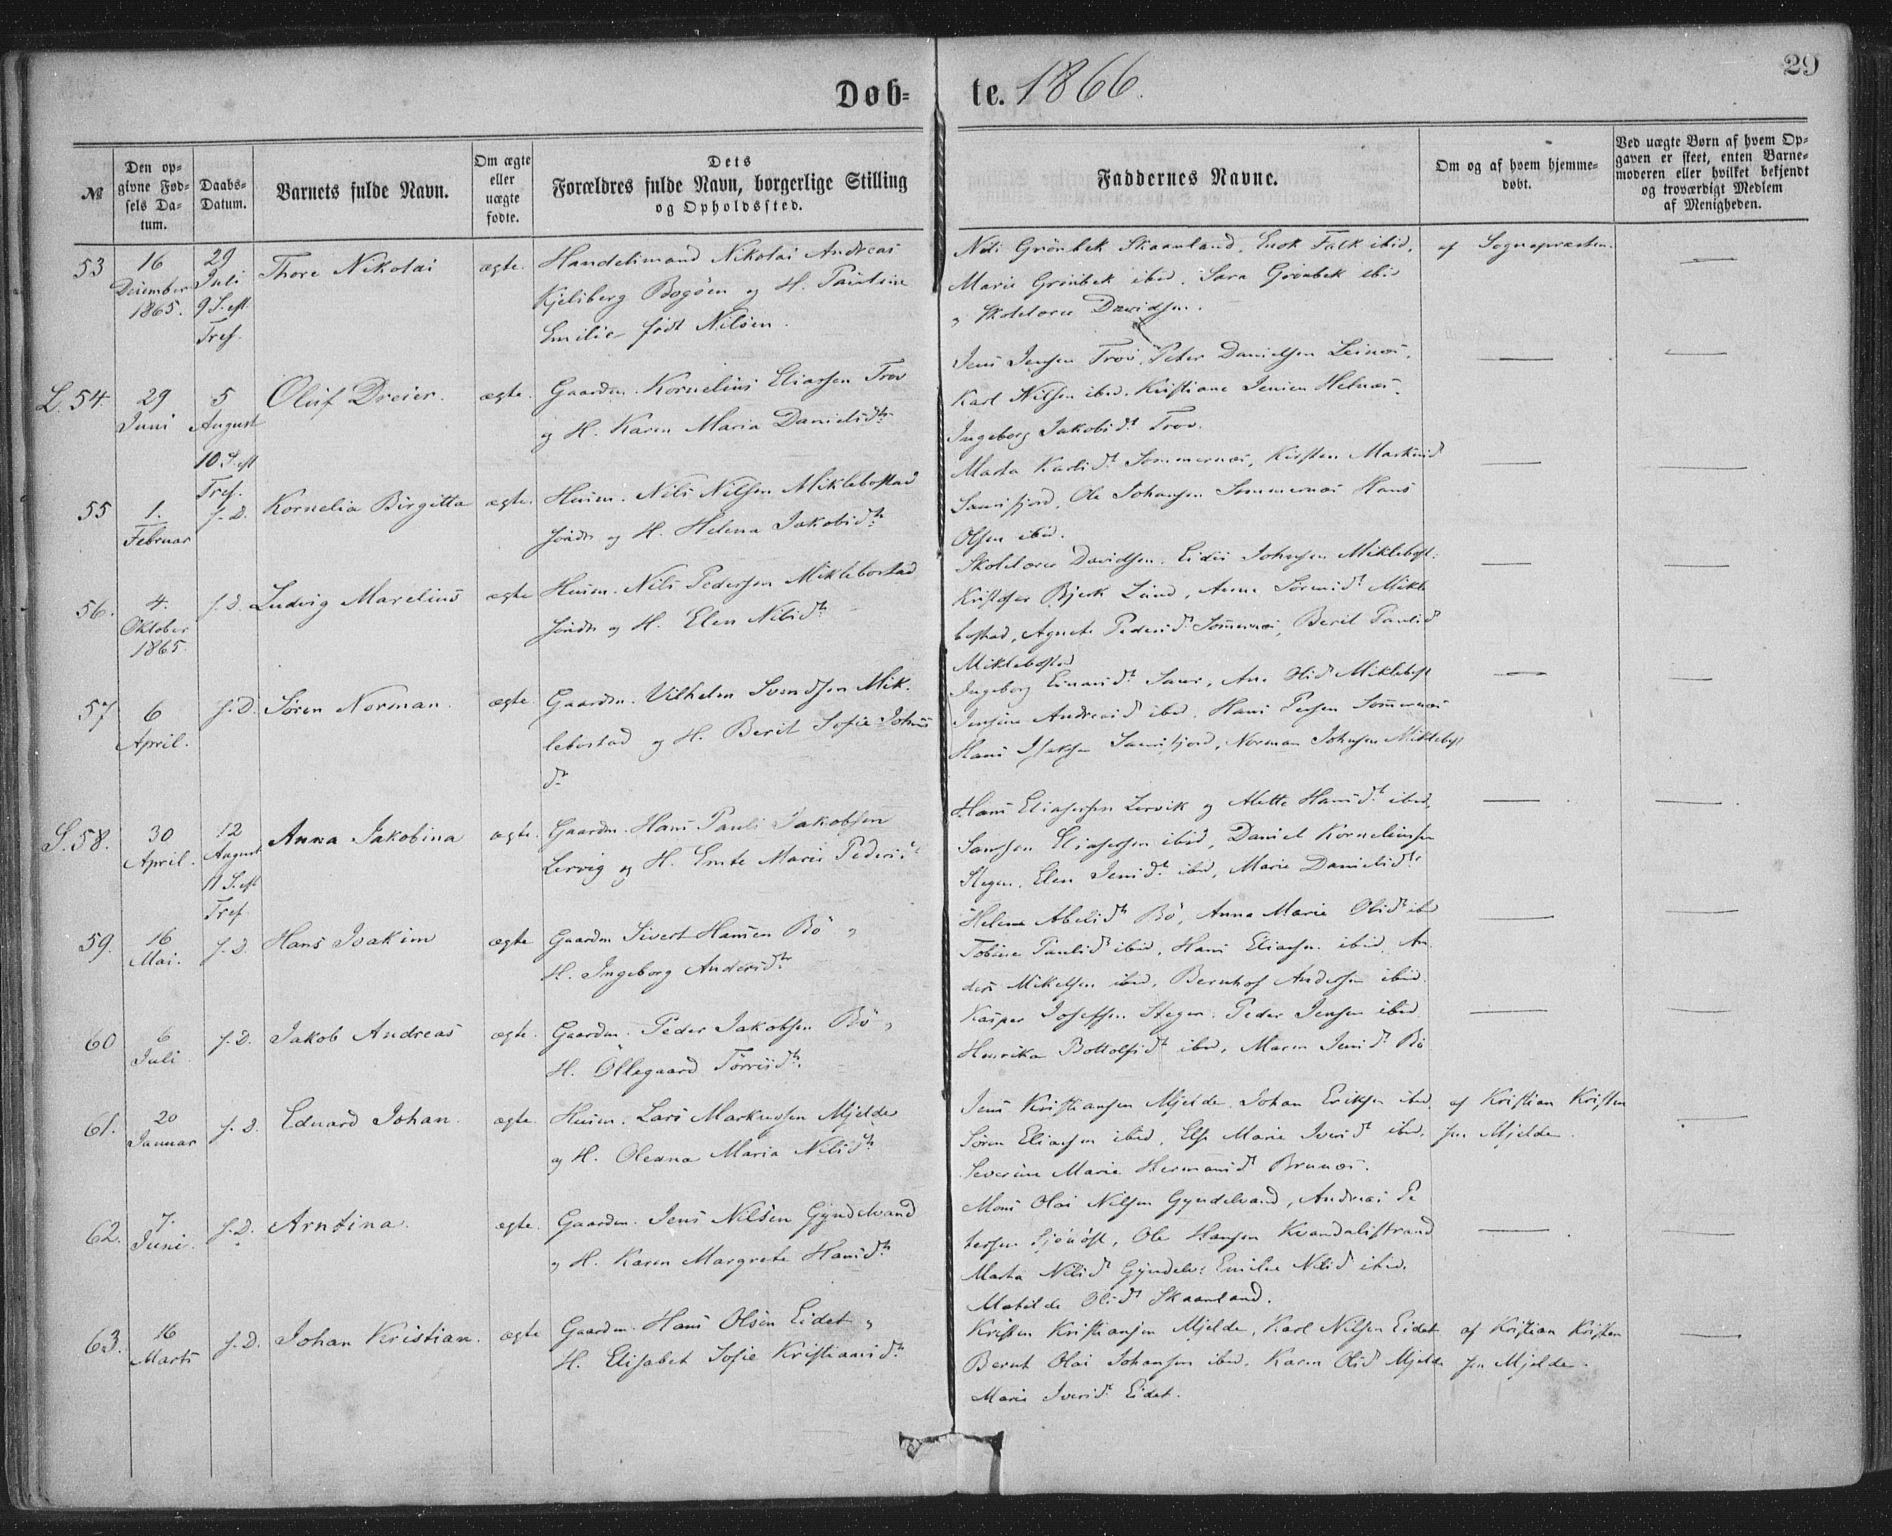 29
Døb- te. 1866.
№
Den opgivne Fødsels Datum.
Daabs-Datum.
Barnets fulde Navn.
Om ægte eller uægte fødte.
Dets Forældres fulde Navn, borgerlige Stilling og Opholdssted.
Faddernes Navne.
Om og af hvem hjemmedøbt.
Ved uægte Børn af hvem Opgaven er skeet, enten Barnemoderen eller hvilket bekjendt og troværdigt Medlem af Menigheden.
53
16 December 1865.
29 Juli 9 S. eft Tref.
Thore Nikolai
ægte.
Handelsmand Nikolai Andreas
Kjelsberg Bogøen og H. Pauline
Emilie født Nilsen.
Nils Grönbek Skaanland. Enok Falk ibid.
Marie Grönbek ibid. Sara Grönbek ibid
Skolelærer Davidsen.
af Sognepræsten.
L. 54.
29 Juni
5 August 10 S. eft Tref.
Oluf Dreier.
ægte.
Gaardm. Kornelius Eliassen Trov
og H. Karen Maria Danielsdtr
Jens Jensen Trov, Peter Danielsen Leinæs,
Karl Nilsen ibid. Kristiane Jensen Helnæs.
Ingeborg Jakobsdt Trov.
55
1. Februar
s. D.
Kornelia Birgitta
ægte.
Husm. Nils Nilsen Miklebostad
og H. Helena Jakobsdtr
Marta Karlsdt Sommernæs, Kirsten Markusd
Sannsfjord, Ole Johansen Sommernæs Hans
Olsen ibid.
56.
4. Oktober 1865
s. D.
Ludvig Marelius
ægte
Husm. Nils Pedersen Miklebostad
og H. Elen Nilsdtr
Skolelærer Davidsen. Johnsen Miklebost.
Kristofer Bjerk Lund, Anne Sörensdt Mikle
bostad, Agnete Pedersdt Sommernæs, Berit Paulsd
Miklebostad
57
6 April.
s. D.
Sören Norman.
ægte.
Gaardm. Vilhelm Svendsen Mik-
lebostad og H. Berit Sofie Johns
dtr
Ingeborg Einarsdt, Ane Olsd Miklebost
Jensine Andreasd ibid. Hans Sommernæs
Hans Isaksen, Norman Johnsen Miklebost
S. 58.
30 April.
12 August 11 S. eft Tref
Anna Jakobina
ægte.
Gaardm. Hans Pauli Jakobsen
Lervig og H. Marie Peders
Hans Eliasersen Lervik og Mette Hansdt ibid.
Samson Eliasersen ibid, Daniel Korneliussen
Stegen, Elen Jensdt ibid, Marie Danielsdt
59.
16 Mai.
s. D.
Hans Joakim
ægte
Gaardm Sivert Hansen Bö
H. Ingeborg Andersdtr
Helene Abelsdtr Bö, Anna Marie Olsdt ibid
Paulsdt ibid, Hans Eliassen ibid, An
ders Mikelsen ibid, Bernhof Andersen ibid.
60
6 Juli
s. D.
Jakob Andreas
ægte.
Gaardm. Peder Jakobsen Bö
H. Ollegaard Törrisdtr.
Kasper Josefsen Stegen. Peder Jensen ibid
Henrika Bottolfsdt ibid, Maren Jensdt Bö
61.
20 Januar
s. D.
Eduard Johan.
ægte.
Husm. Lars Markussen Mjelde
og H. Oleana Maria Nilsdtr
Jens Kristiansen Mjelde. Johan Eriksen ibid.
Sören Eliassen ibid, Else Marie Iversdt ibid.
Severine Marie Hermansdt Brunæs.
af Kristian Kristen
sen Mjelde.
62.
7. Juni.
s. D.
Arntina.
ægte.
Gaardm. Jens Nilsen Gyndelvand
og H. Karen Margrete Hansdtr
Mons Olai Nilsen Gyndelvand, Andreas Pe
tersen, Ole Hansen Kvandalstrand
Marta Nilsdt Gyndelv: Emilie Nilsd ibid.
Matilde Olsdt Skaanland.
63.
16 Marts
s. D.
Johan Kristian.
ægte
Gaardm Hans Olsen Eidet
H. Elisabet Sofie Kristiansdtr
Kristen Kristiansen Mjelde, Karl Nilsen Eidet
Bernt Olai Johansen ibid. Karen Olsd Mjelde
Marie Iversdt Eidet.
af Kristian Kristen
sen Mjelde.